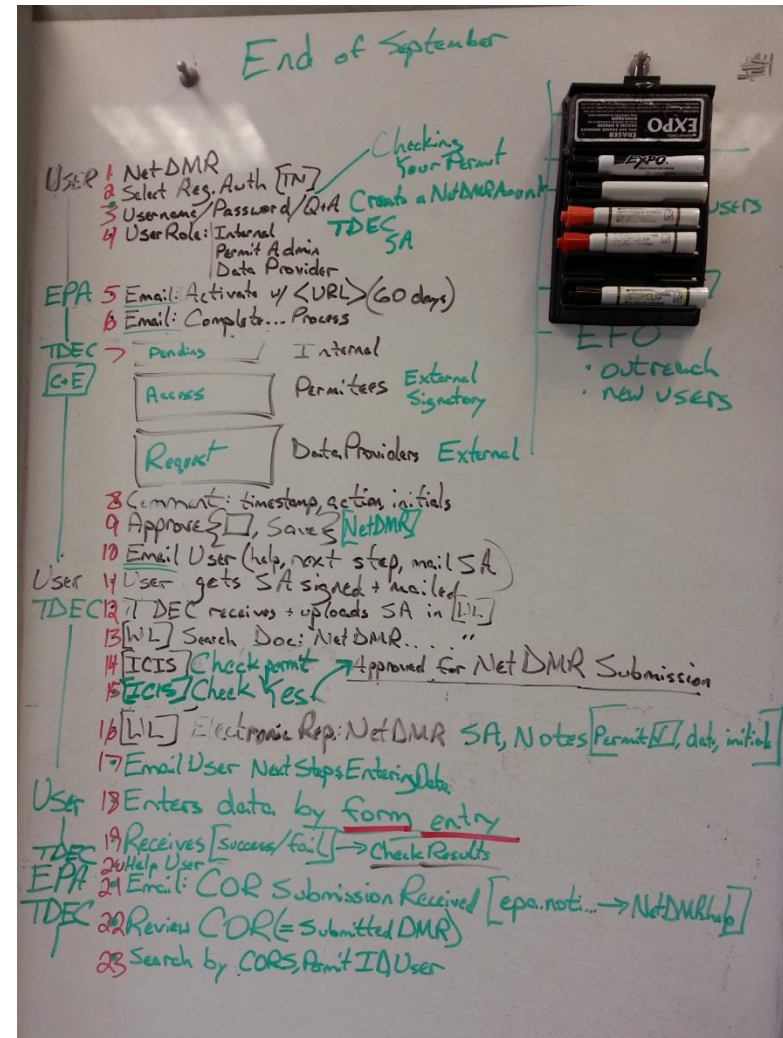 End of September
EXPO
EXPO
Checking
Your Permit
USER 1 NetDMR
2 Select Reg. Auth [TN]
3 Username/Password/Q+A Create a NetDMR Account
TDEC
SA
4 User Role: Internal
Permit Admin
Data Provider
USERS
EPA 5 Email: Activate w/ <URL> (60 days)
6 Email: Complete... Process
TDEC 7 Pending Internal
C+E
Access Permitees External
Signatory
Request Data Providers External
EFO
· outreach
· new users
8 Comment: timestamp, action, initials
9 Approve {☐, Save} [NetDMR]
10 Email User (help, next step, mail SA)
User 11 User gets SA signed + mailed
TDEC 12 TDEC receives + uploads SA in [WL]
13 [WL] Search Doc: "NetDMR...."
14 [ICIS] Check permit
Approved for NetDMR Submission
15 [ICIS] Check Yes
16 [WL] Electronic Rep: NetDMR SA, Notes [Permit, date, initials]
17 Email User Next Steps Entering Data
User 18 Enters data by form entry
19 Receives [success/fail] → Check Results
TDEC 20 Help User
EPA 21 Email: COR Submission Received [epa.noti... → NetDMRhelp]
TDEC 22 Review COR (= Submitted DMR)
23 Search by CORS, Permit ID, User